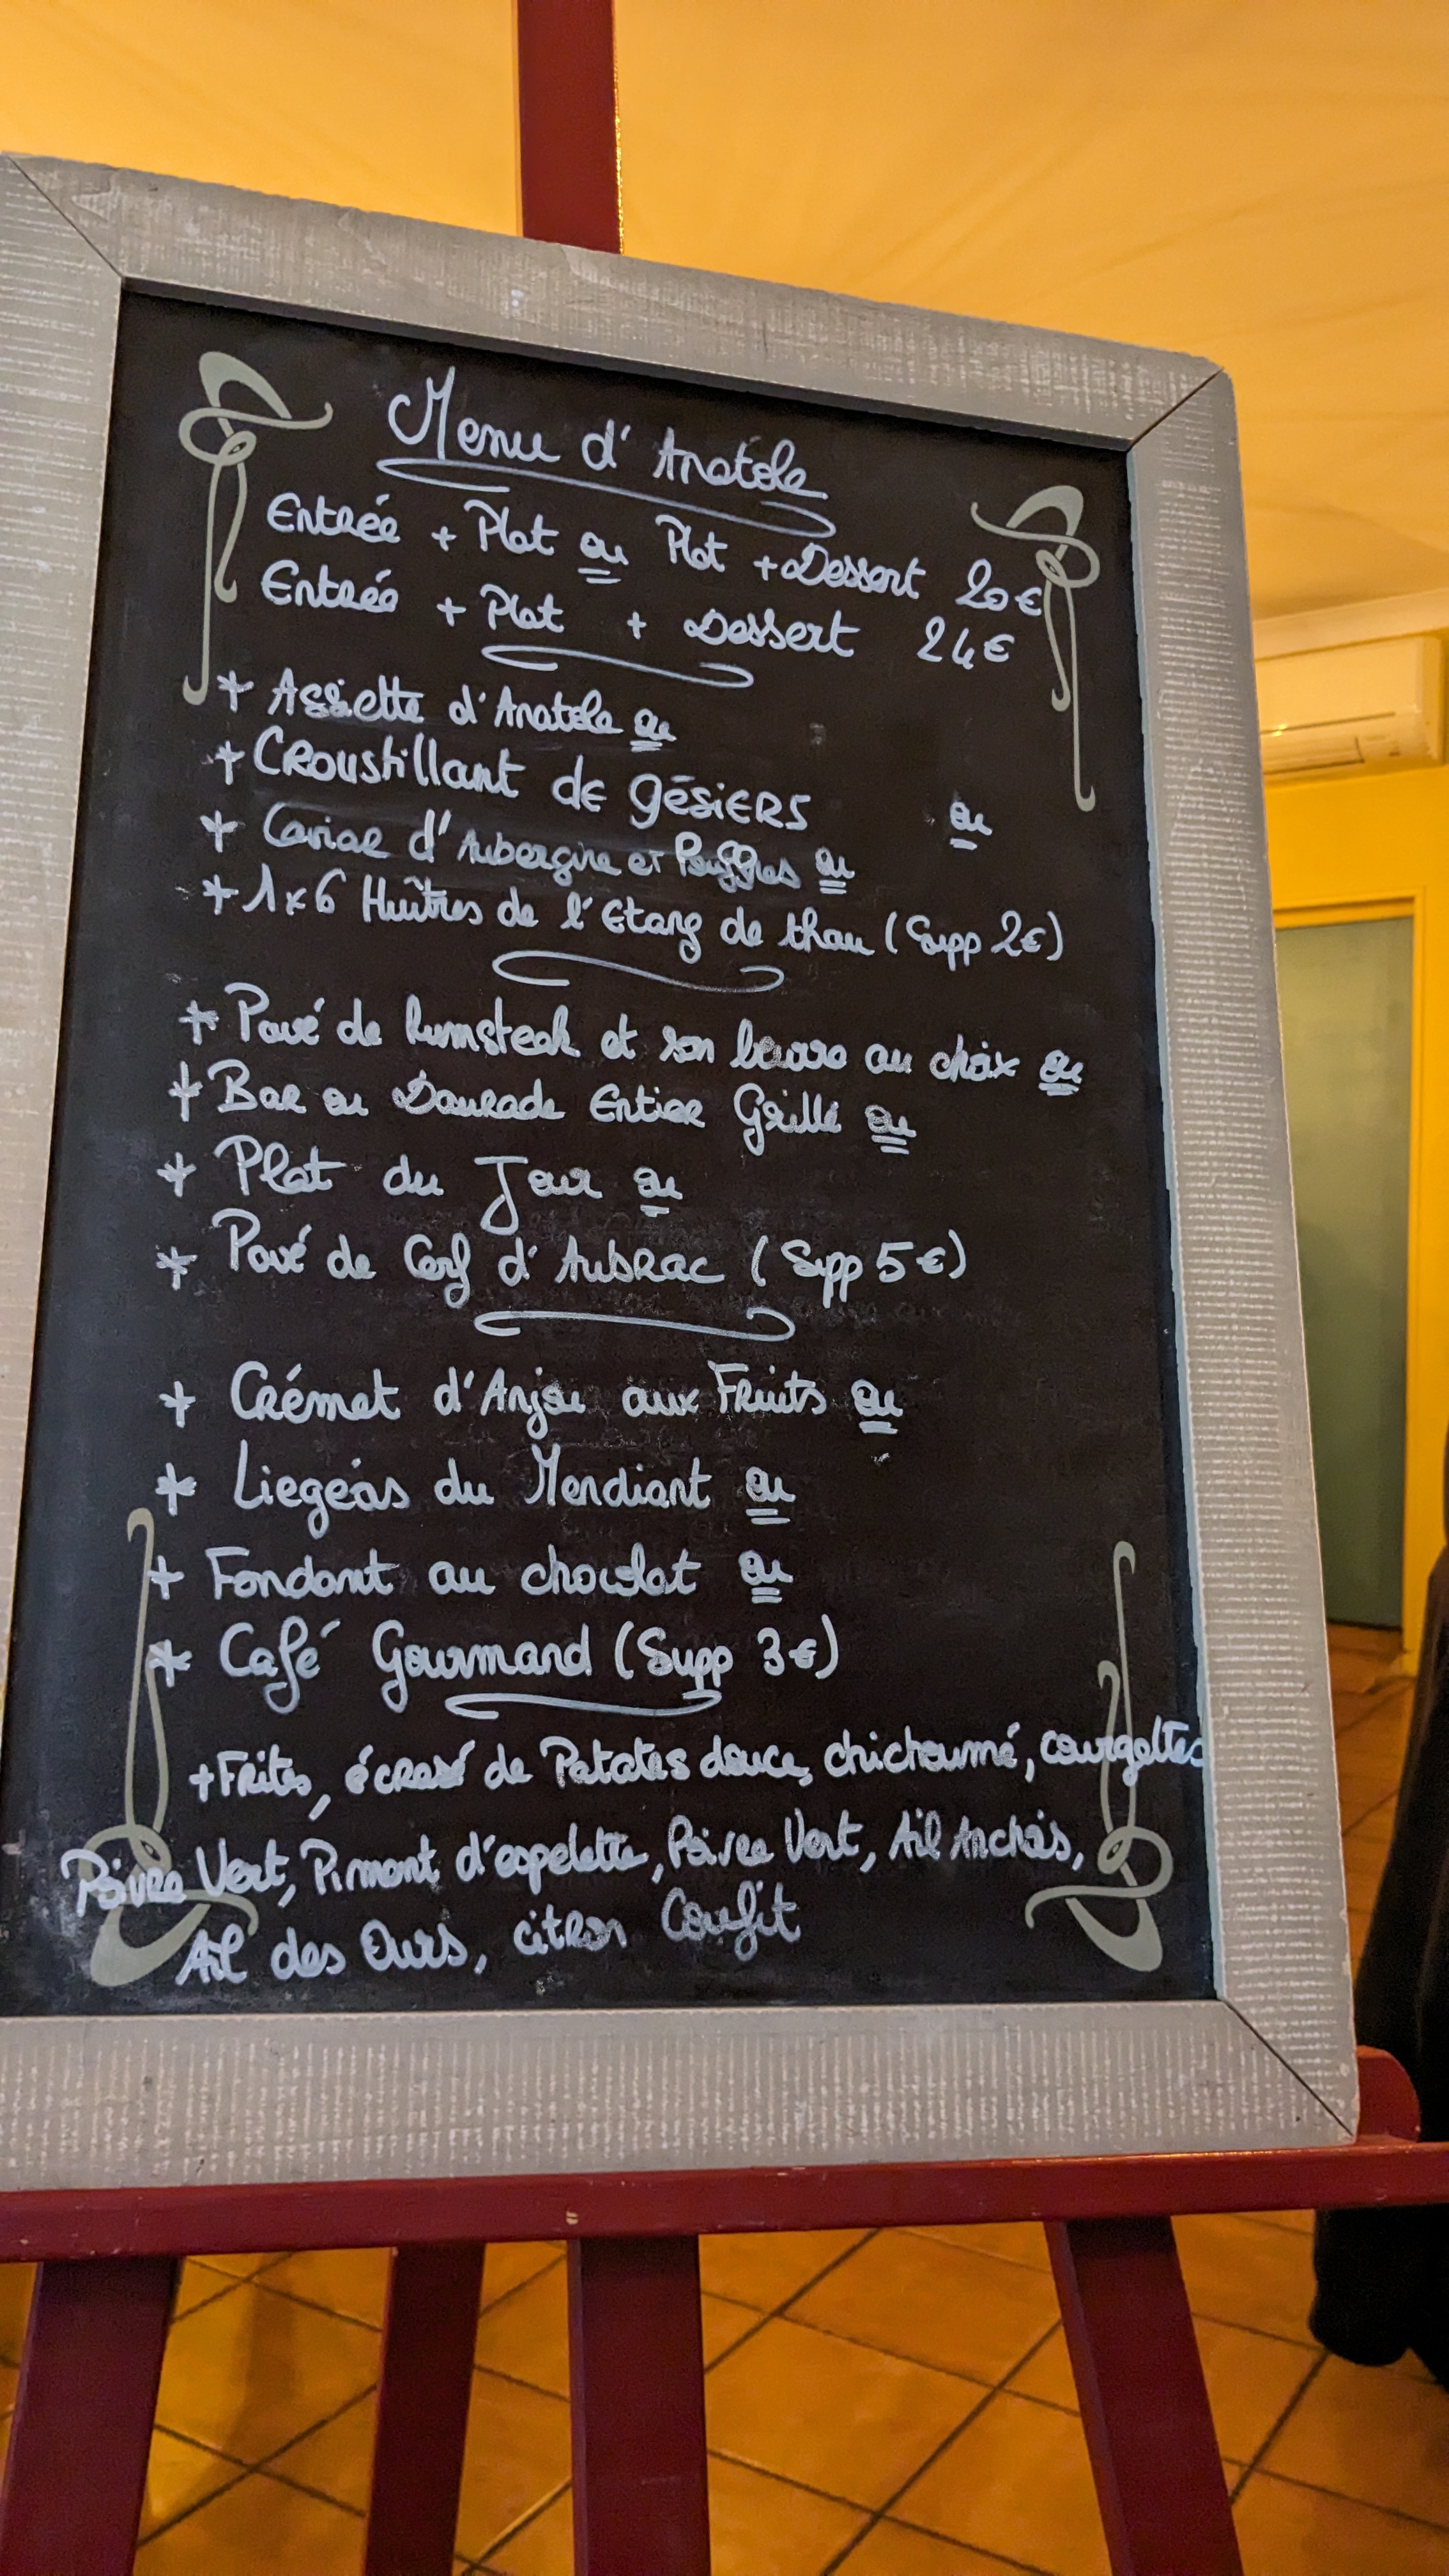 Menu d'Anatole
Entrée + Plat ou Plat + Dessert 20€
Entrée + Plat + Dessert 24€
+ Assiette d'Anatole ou
+ Croustillant de gésiers ou
+ Caviar d'Aubergine et ou
+ 1x6 Huîtres de l'Etang de thau (Supp 2€)
+ Pavé de Rumsteck et son beurre au choix ou
+ Bar ou Daurade Entier Grillé ou
+ Plat du Jour ou
* Pavé de Cerf d'Aubrac (Supp 5€)
+ Crémet d'Anjou aux Fruits ou
* Liegeois du Mendiant ou
+ Fondant au chocolat ou
* Café Gourmand (Supp 3€)
+Frites, écrasé de Patates douce, chichoumé, courgettes
Poivre Vert, Piment d'espelette, Poivre Vert, Ail Anchois,
Ail des Ours, citron Confit